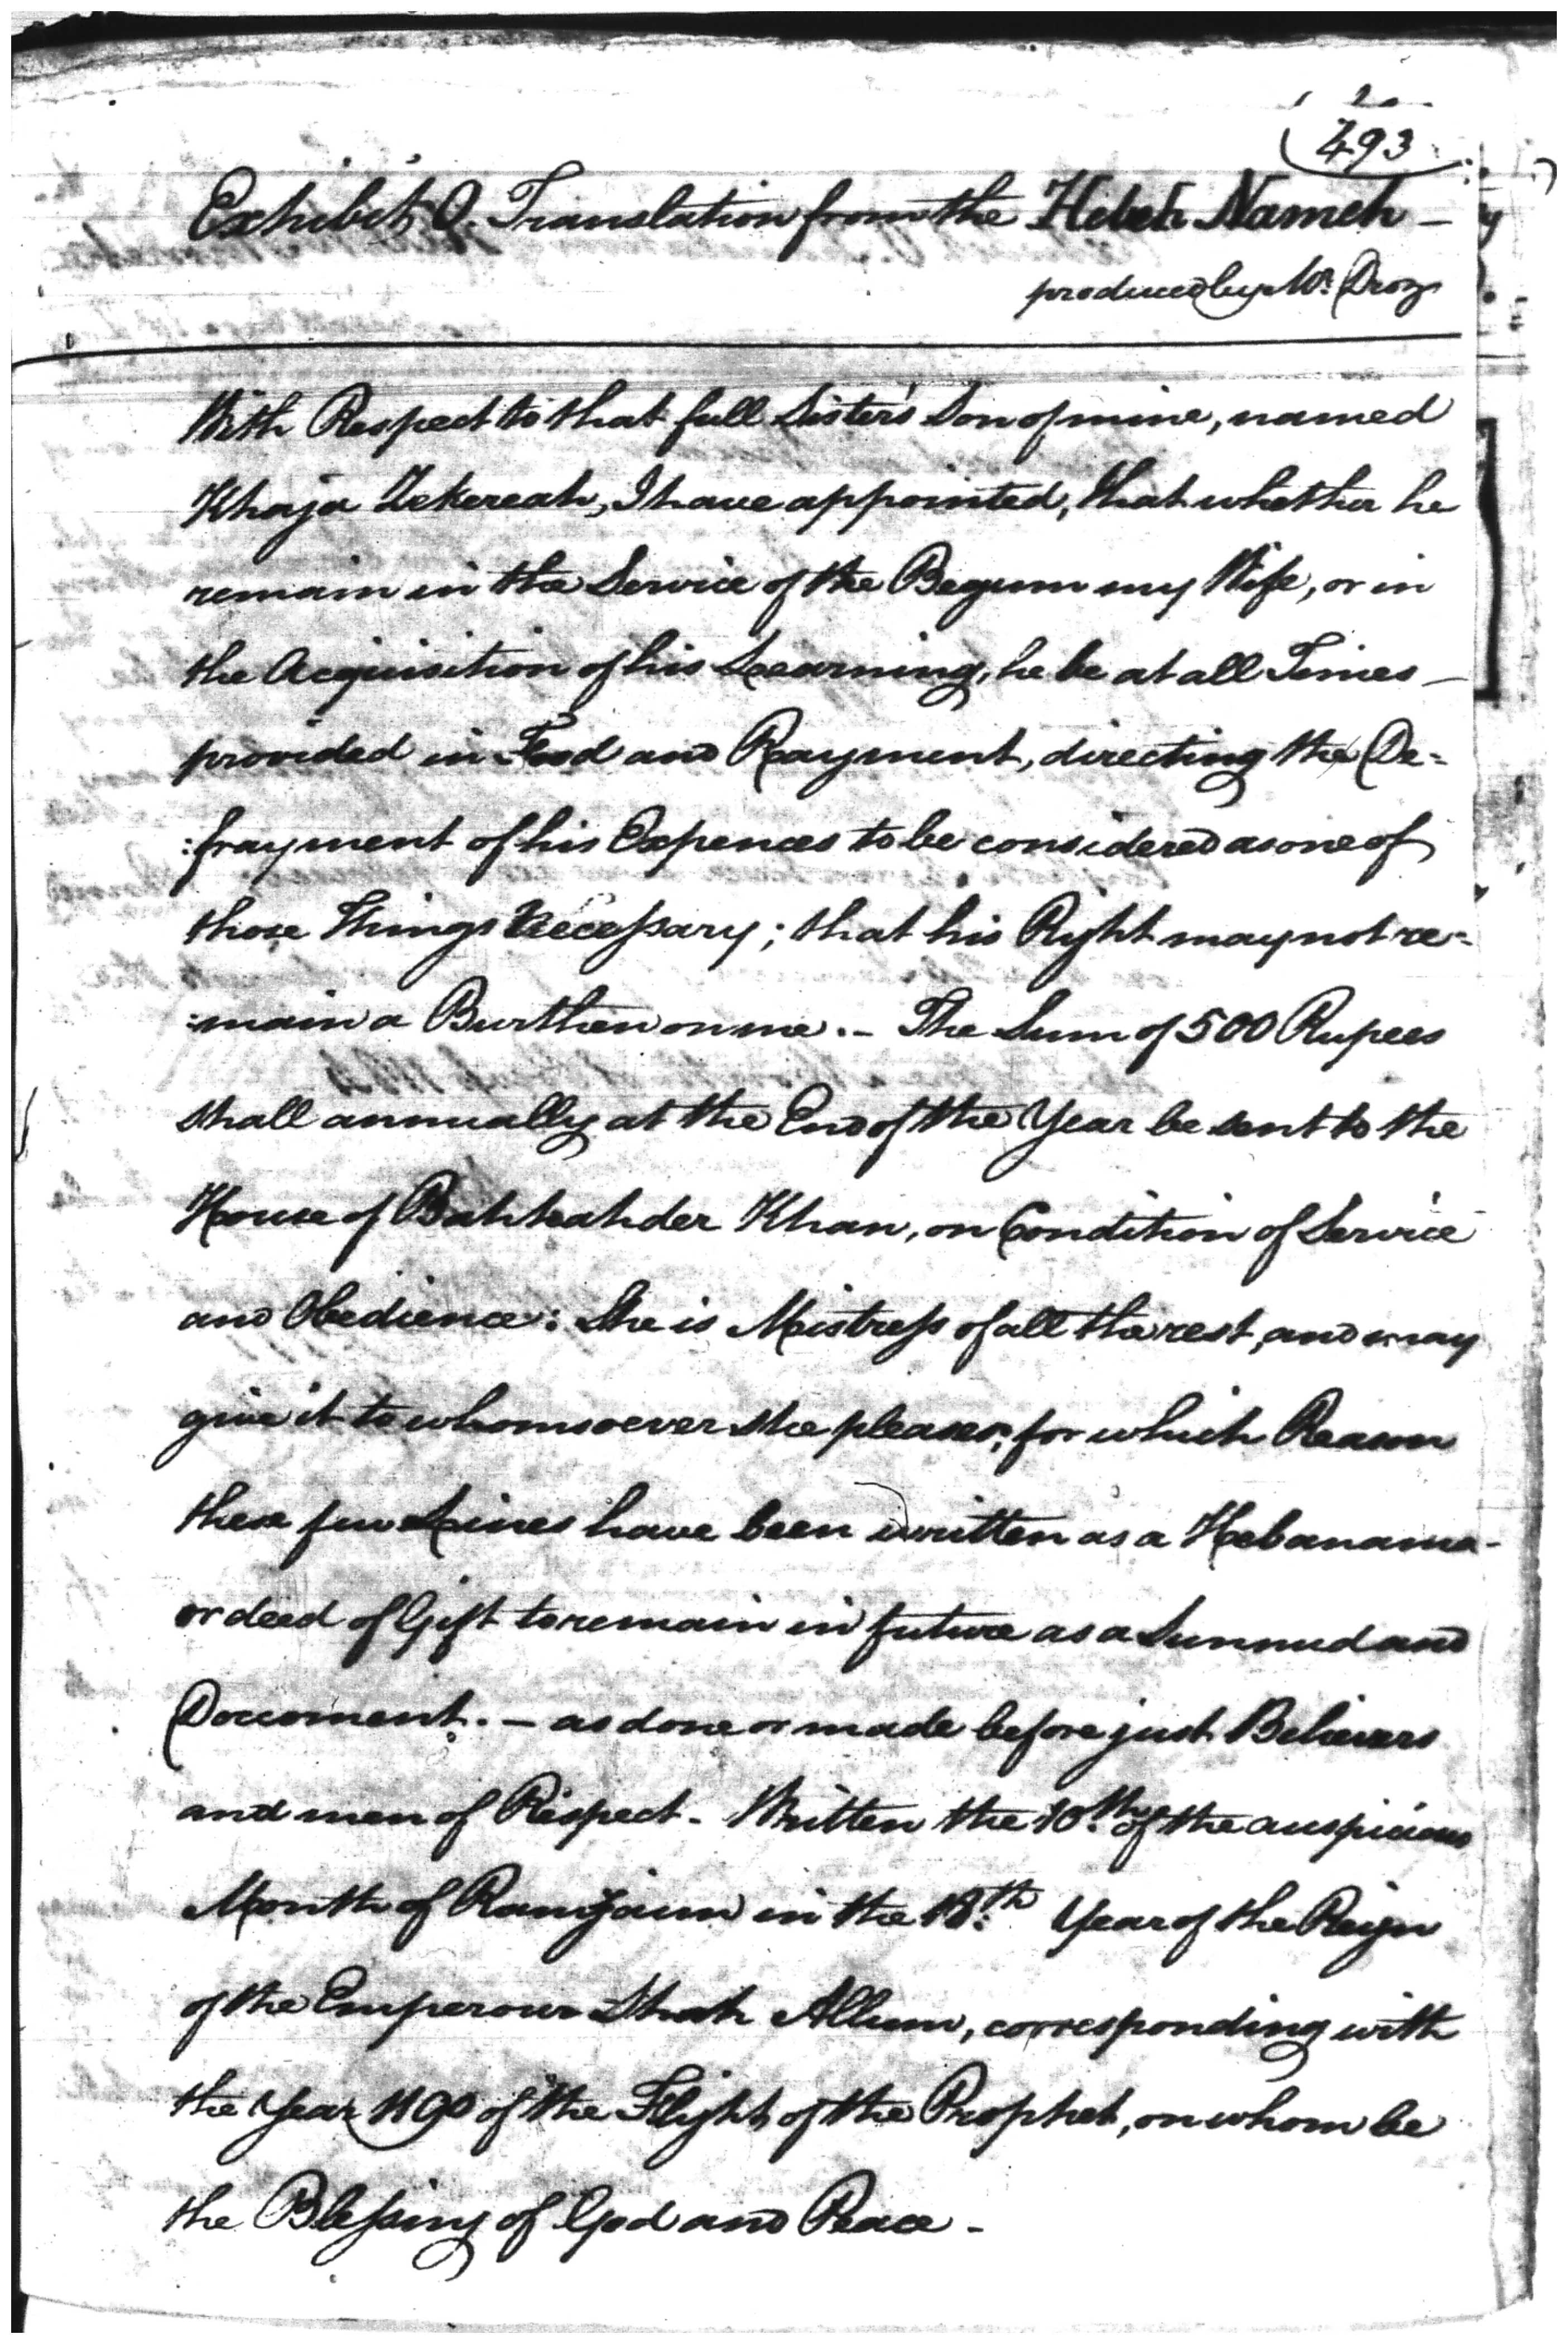 493
Exhibit O. Translation from the Hebeh Nameh —
produced by Mr. Droz
With Respect to that full Sister's Son of mine, named
Khaja Zekereah, I have appointed, that whether he
remain in the Service of the Begum my Wife, or in
the Acquisition of his Learning, he be at all Times —
provided in Food and Rayment, directing the De=
:frayment of his Expences to be considered as one of
those Things Necessary; that his Right may not re=
:main a Burthen on me. – The Sum of 500 Rupees
shall annually at the End of the Year be sent to the
House of Bahhahder Khan, on Condition of Service
and Obedience: She is Mistress of all the rest, and may
give it to whomsoever she pleases; for which Reason
these few Lines have been written as a Hebanama-
or deed of Gift to remain in future as a Sunnud and
Doccoment. – as done or made before just Believers
and men of Respect. Written the 10th. of the auspicious
Month of Ramzaun in the 18th. Year of the Reign
of the Emperour Shah Allum, corresponding with
the Year 1190 of the Flight of the Prophet, on whom be
the Blessing of God and Peace -